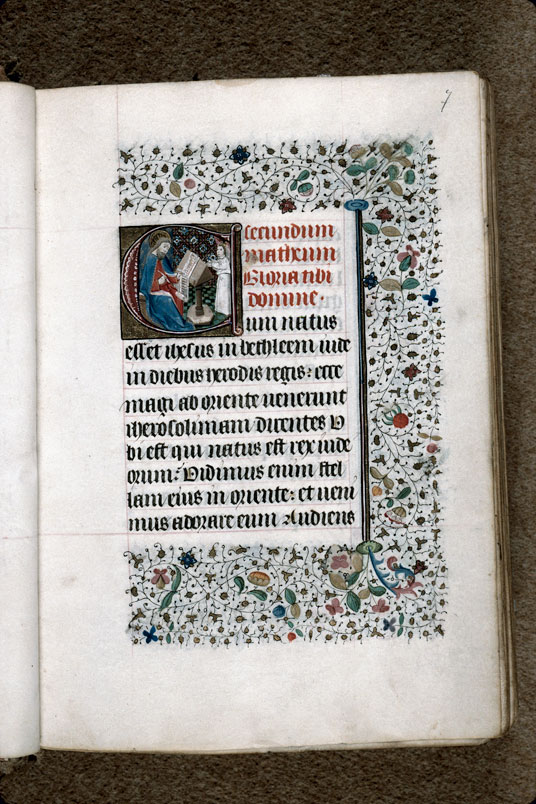 7
secundum
matheum
Gloria tibi
domine.
Cum natus
esset ihesus in bethleem iude
in diebus herodis regis: ecce
magi ab oriente uenerunt
iherosolimam dicentes U
bi est qui natus est rex iude
orum: Uidimus enim stel
lam eius in oriente: et ueni
mus adorare eum Audiens